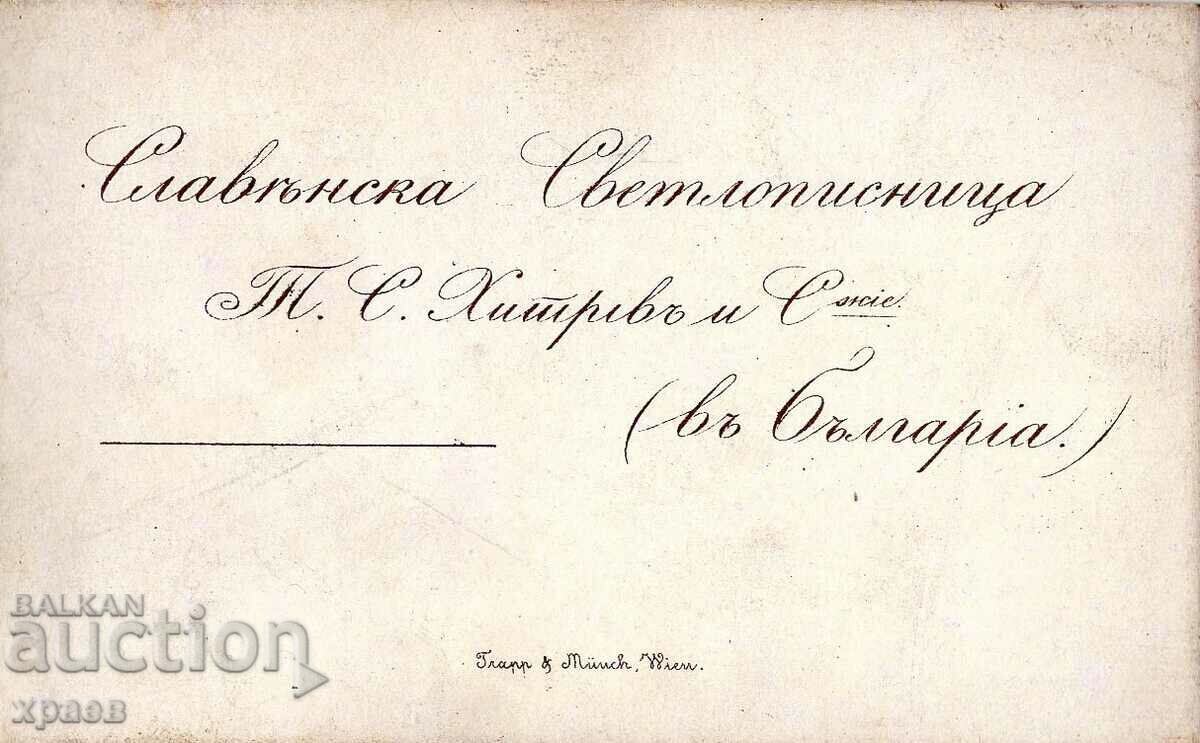 Славѣнска Светлописница
Т. С. Хитровъ и Сжіе.
(въ Българіа.)
Trapp & Münch, Wien.
BALKAN
auction
храев